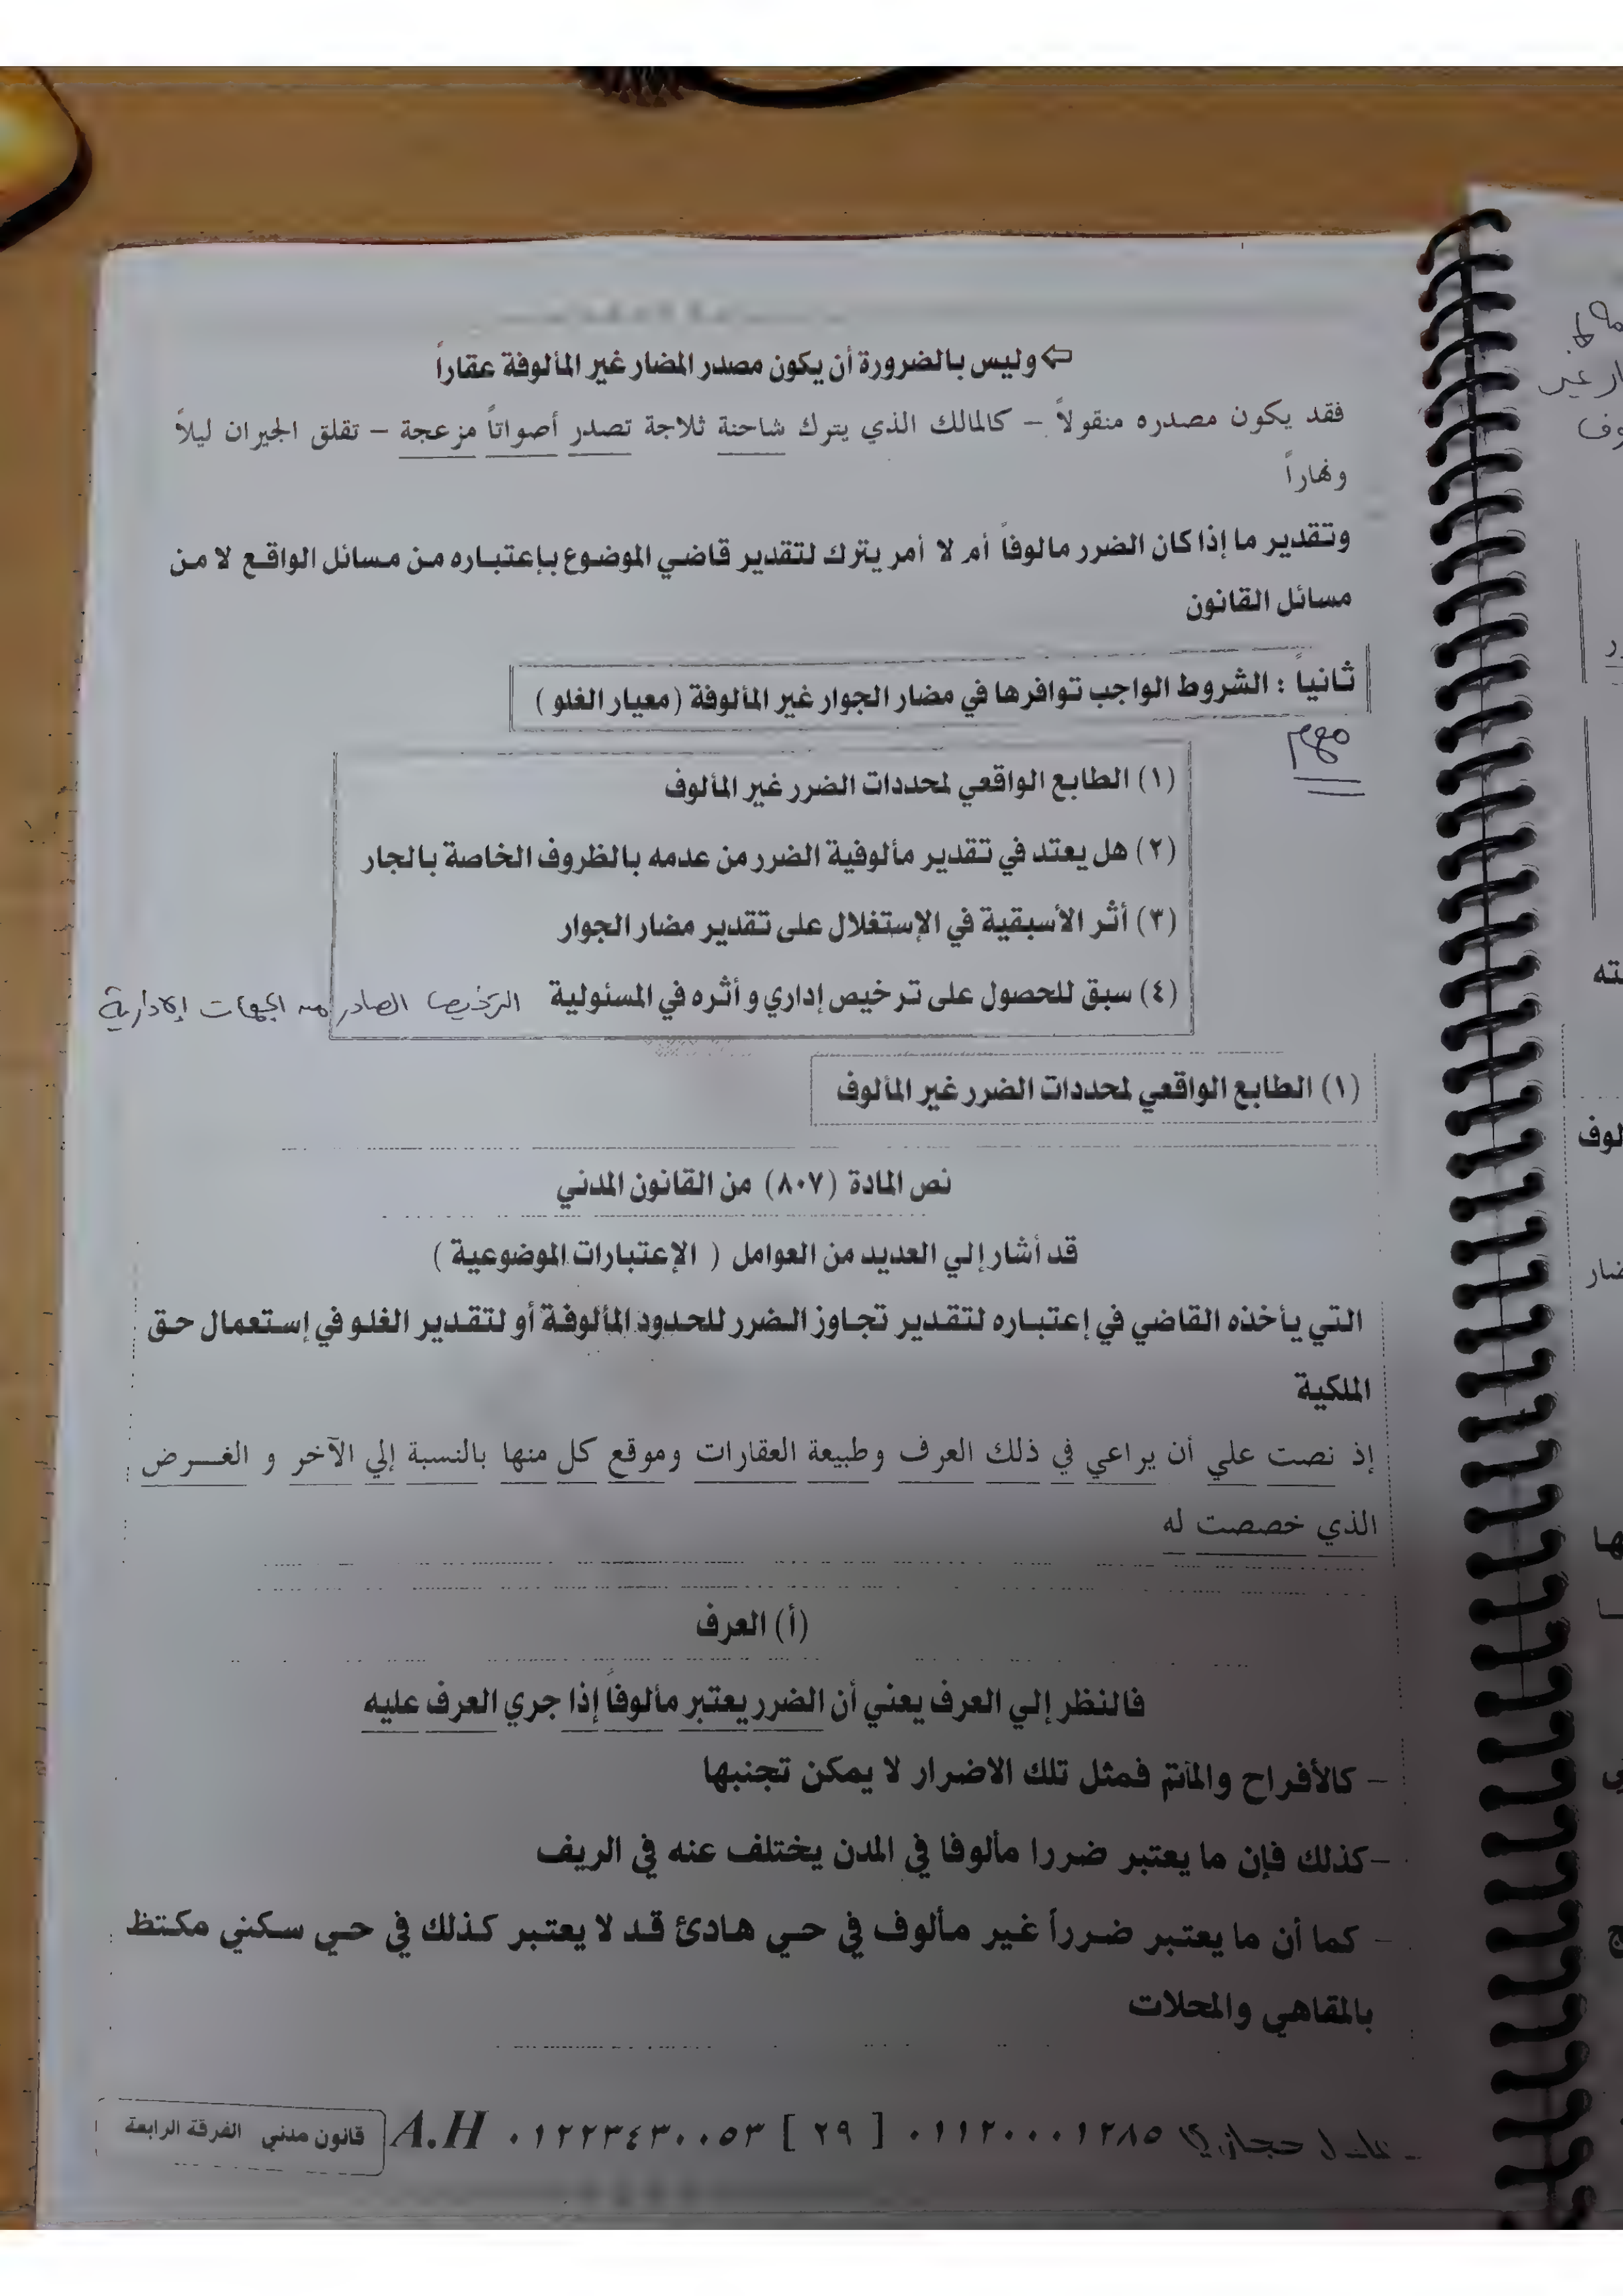 ⇦ وليس بالضرورة أن يكون مصدر المضار غير المألوفة عقاراً
فقد يكون مصدره منقولاً – كالمالك الذي يترك شاحنة ثلاجة تصدر أصواتاً مزعجة – تقلق الجيران ليلاً
ونهاراً
وتقدير ما إذا كان الضرر مالوفاً أم لا أمر يترك لتقدير قاضي الموضوع بإعتباره من مسائل الواقع لا من
مسائل القانون
ثانياً : الشروط الواجب توافرها في مضار الجوار غير المألوفة (معيار الغلو )
مهم
(١) الطابع الواقعي لمحددات الضرر غير المألوف
(٢) هل يعتد في تقدير مألوفية الضرر من عدمه بالظروف الخاصة بالجار
(٣) أثر الأسبقية في الإستغلال على تقدير مضار الجوار
(٤) سبق للحصول على ترخيص إداري و أثره في المسئولية الترخيص الصادر من الجهات الإدارية
(١) الطابع الواقعي لمحددات الضرر غير المألوف
نص المادة (٨٠٧) من القانون المدني
قد أشار إلي العديد من العوامل ( الإعتبارات الموضوعية )
التي يأخذه القاضي في إعتباره لتقدير تجاوز الضرر للحدود المألوفة أو لتقدير الغلو في إستعمال حق
الملكية
إذ نصت علي أن يراعي في ذلك العرف وطبيعة العقارات وموقع كل منها بالنسبة إلي الآخر و الغرض
الذي خصصت له
(أ) العرف
فالنظر إلي العرف يعني أن الضرر يعتبر مألوفاً إذا جري العرف عليه
– كالأفراح والمأتم فمثل تلك الاضرار لا يمكن تجنبها
–كذلك فإن ما يعتبر ضررا مألوفا في المدن يختلف عنه في الريف
– كما أن ما يعتبر ضرراً غير مألوف في حي هادئ قد لا يعتبر كذلك في حي سكني مكتظ
بالمقاهي والمحلات
حجازي ٠١١٢٠٠٠١٢٨٥ [ ٢٩ ] ٠١٢٢٣٤٣٠٠٥٣ A.H قانون مدني الفرقة الرابعة